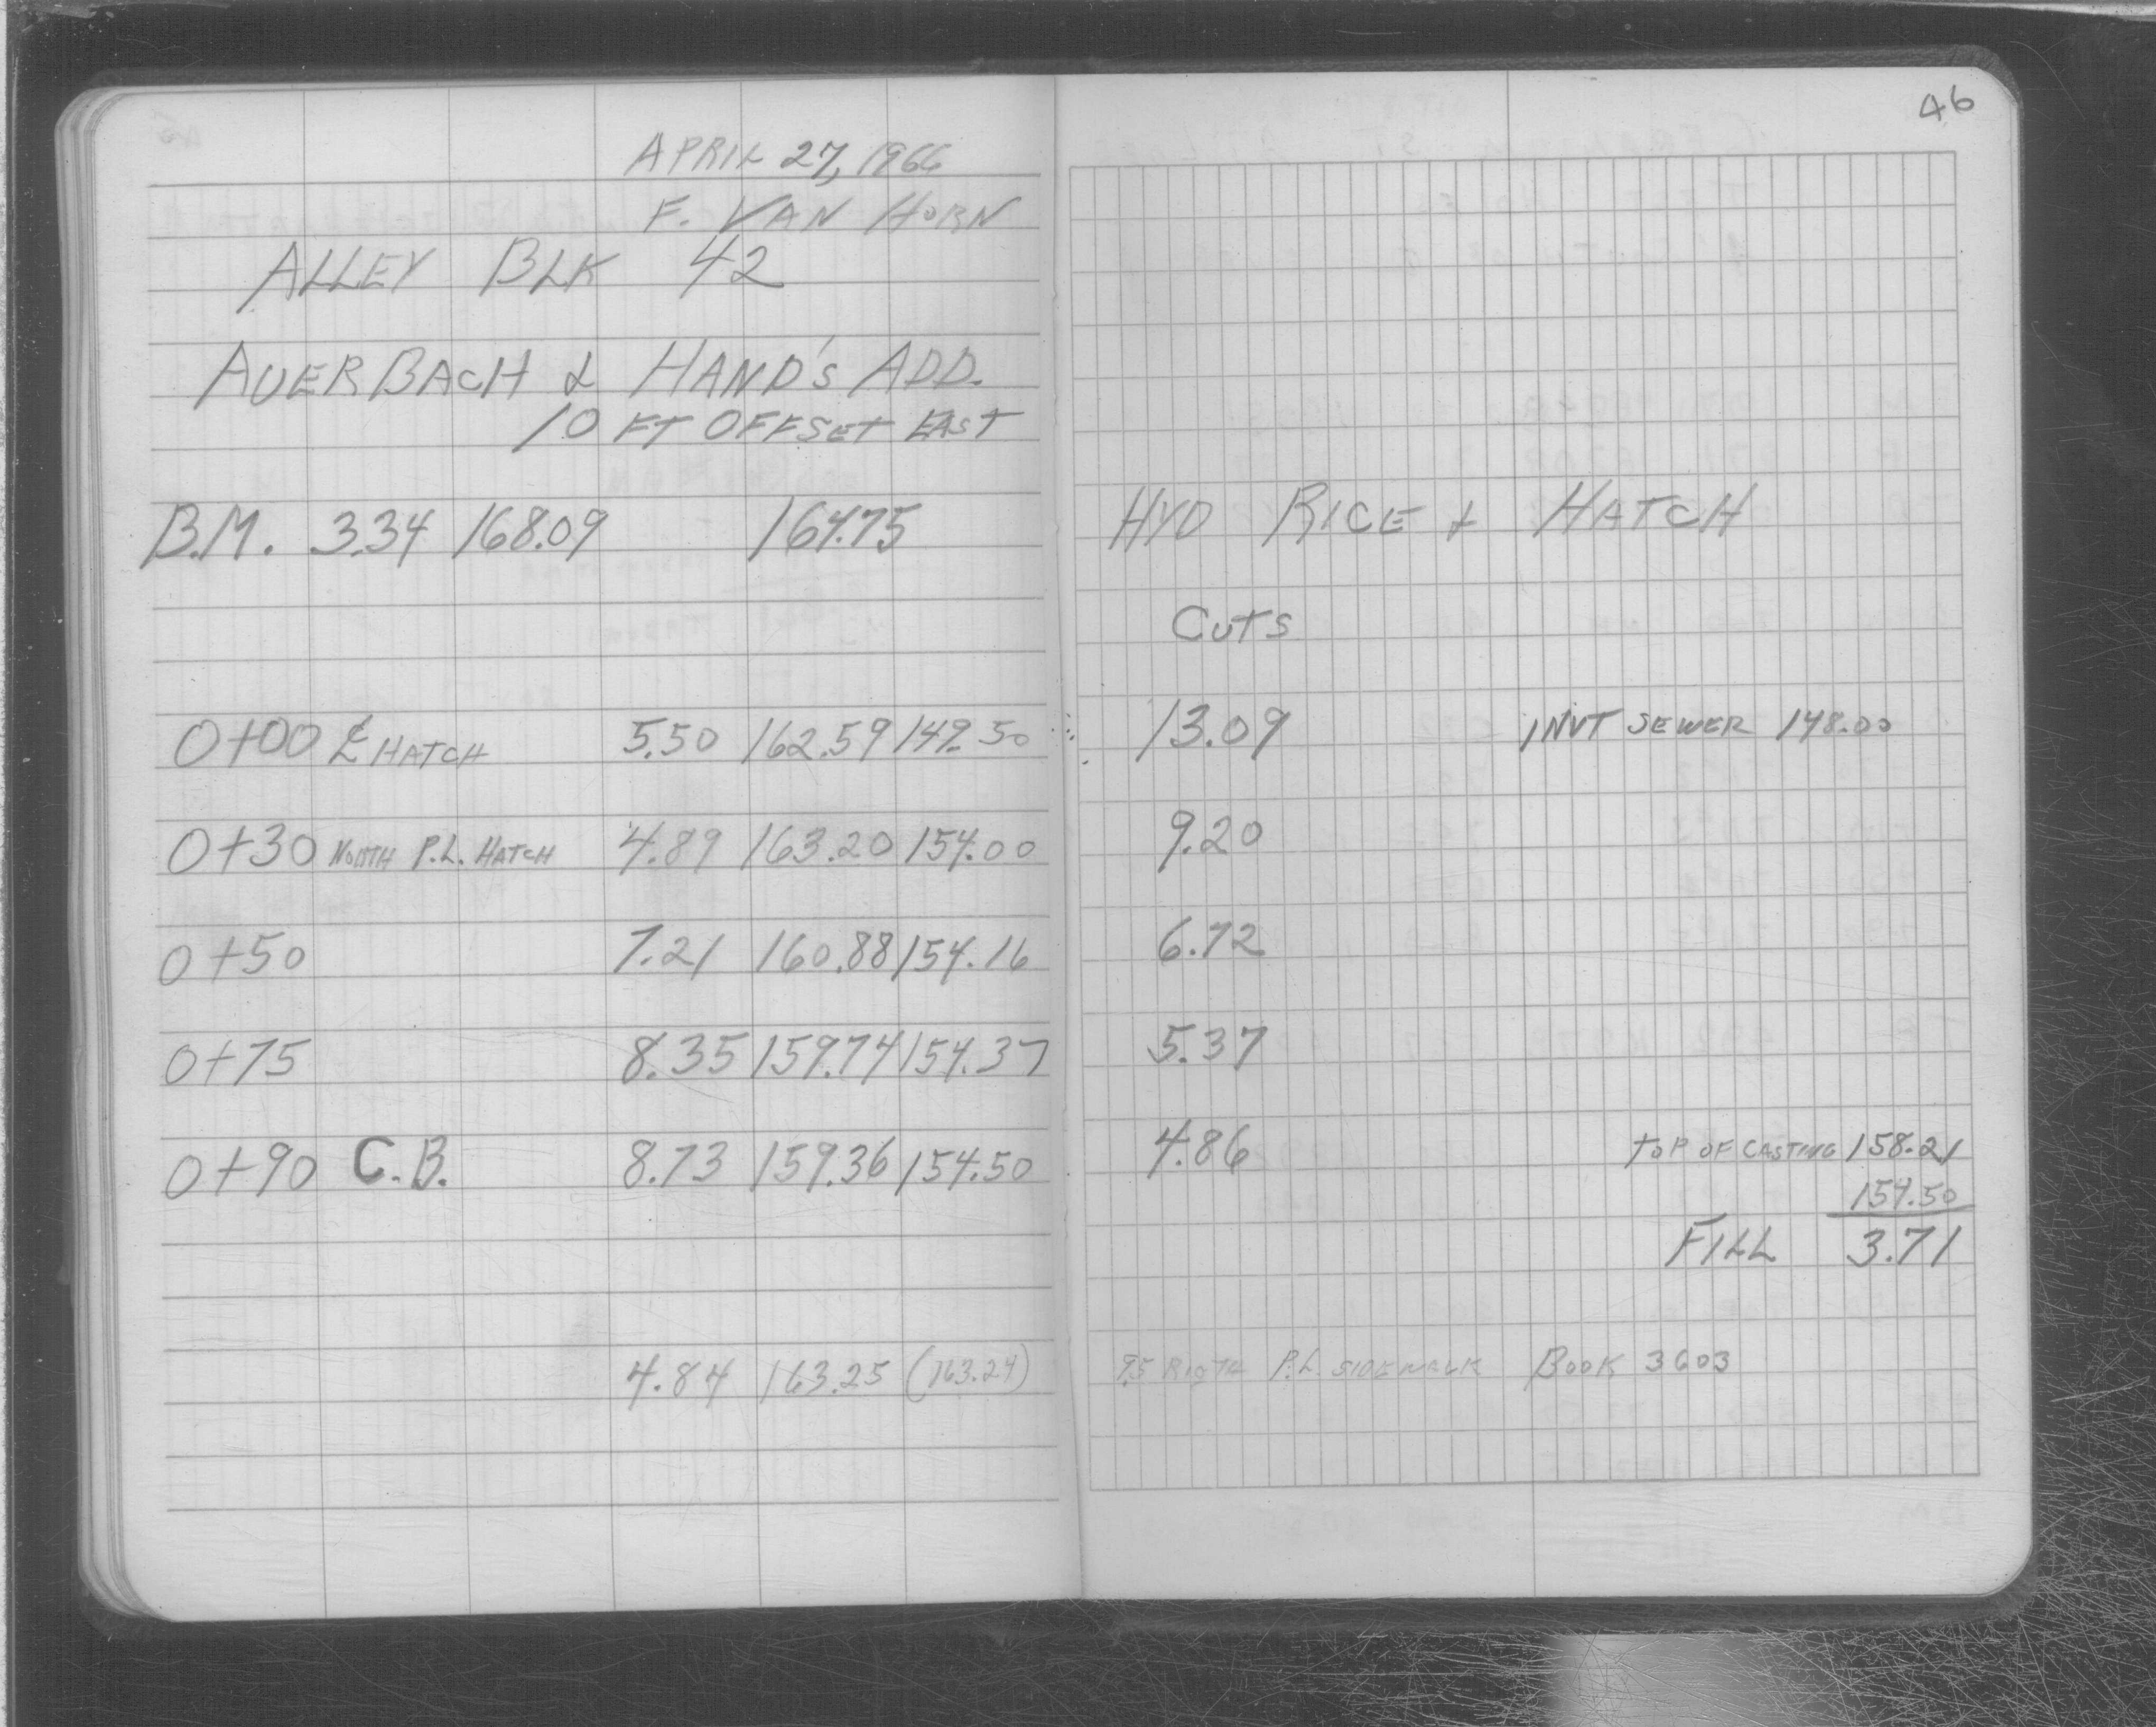 46
APRIL 27, 1966
F. VAN HORN
ALLEY BLK 42
AUERBACH & HAND'S ADD.
10 FT OFFSET EAST
B.M. 3.34 168.09 164.75 HYD RICE + HATCH
CUTS
0+00 ℄ HATCH 5.50 162.59 149.50 13.09 INVT SEWER 148.00
0+30 NORTH P.L. HATCH 4.89 163.20 154.00 9.20
0+50 7.21 160.88 154.16 6.72
0+75 8.35 159.74 154.37 5.37
0+90 C.B. 8.73 159.36 154.50 4.86 TOP OF CASTING 158.21
154.50
FILL 3.71
4.84 163.25 (163.24) P.L. SIDEWALK BOOK 3603